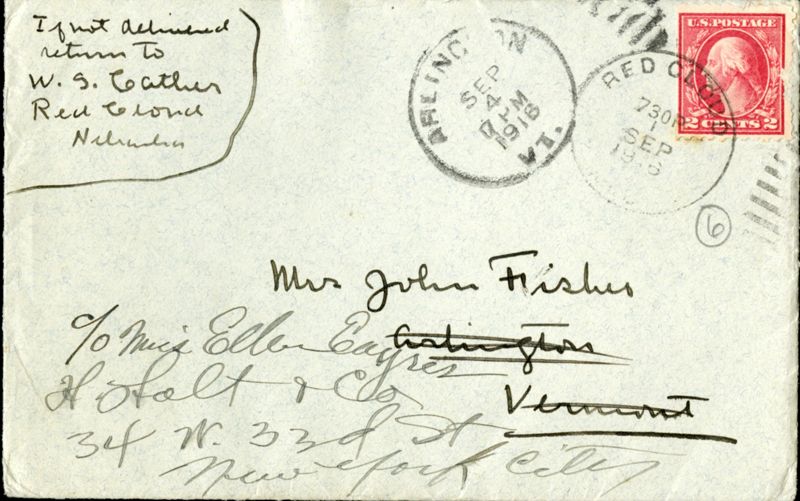 If not delivered
return to
W. S. Cather
Red Cloud
Nebraska
ARLINGTON, VT.
SEP
4
7 PM
1916
RED CLOUD
730P
1
SEP
1916
U.S. POSTAGE
2 CENTS 2
6
Mrs John Fisher
Arlington
Vermont
c/o Miss Ellen Eayres
H. Holt & Co
34 W. 33d St
New York City